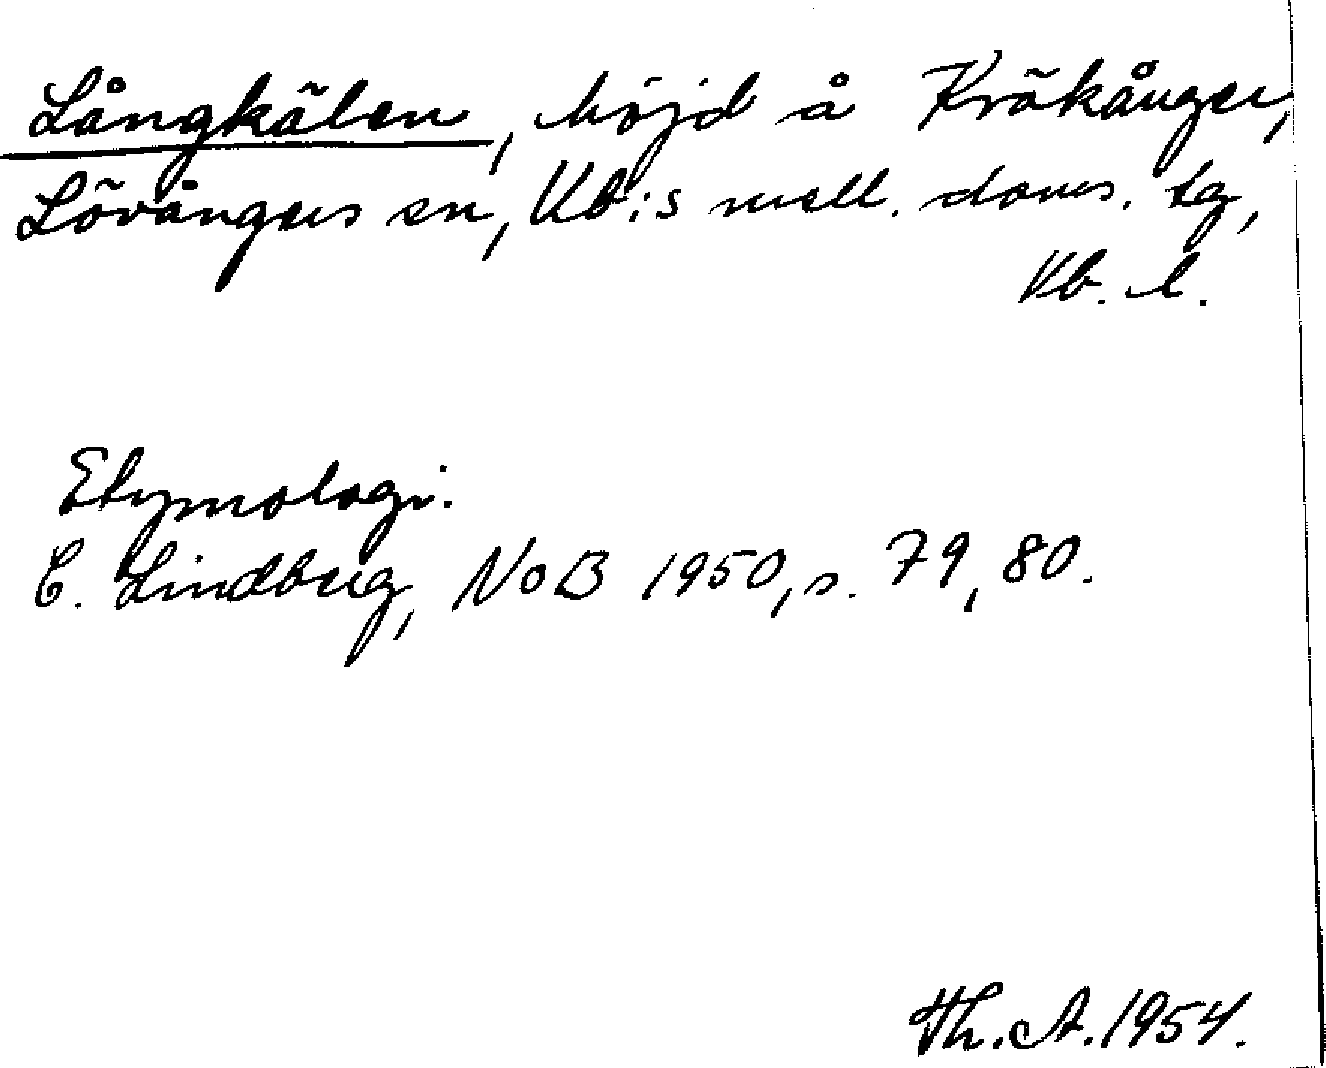 Långkälen, höjd å Kräkånger,
Lövångers sn, Vb:s mell. doms. tg,
Vb. l.
Etymologi.
C. Lindberg, NoB 1950, s. 79, 80.
Th. A. 1954.